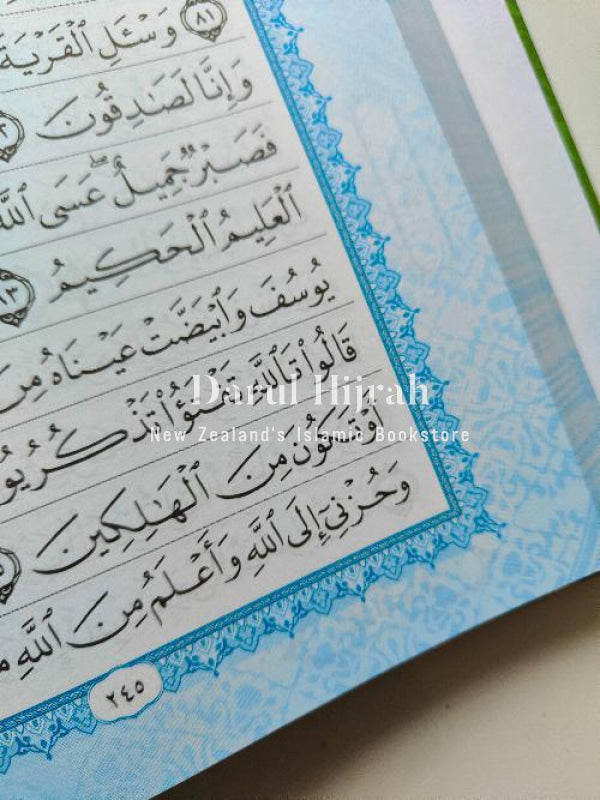 ٨١ وَسْـَٔلِ ٱلْقَرْيَةَ
وَإِنَّا لَصَٰدِقُونَ
فَصَبْرٌ جَمِيلٌ ۖ عَسَى ٱللَّهُ
ٱلْعَلِيمُ ٱلْحَكِيمُ
يُوسُفَ وَٱبْيَضَّتْ عَيْنَاهُ مِنَ
قَالُوا۟ تَٱللَّهِ تَفْتَؤُا۟ تَذْكُرُ
أَوْ تَكُونَ مِنَ ٱلْهَٰلِكِينَ
وَحُزْنِىٓ إِلَى ٱللَّهِ وَأَعْلَمُ مِنَ ٱللَّهِ
٢٤٥
Darul Hijrah
New Zealand's Islamic Bookstore